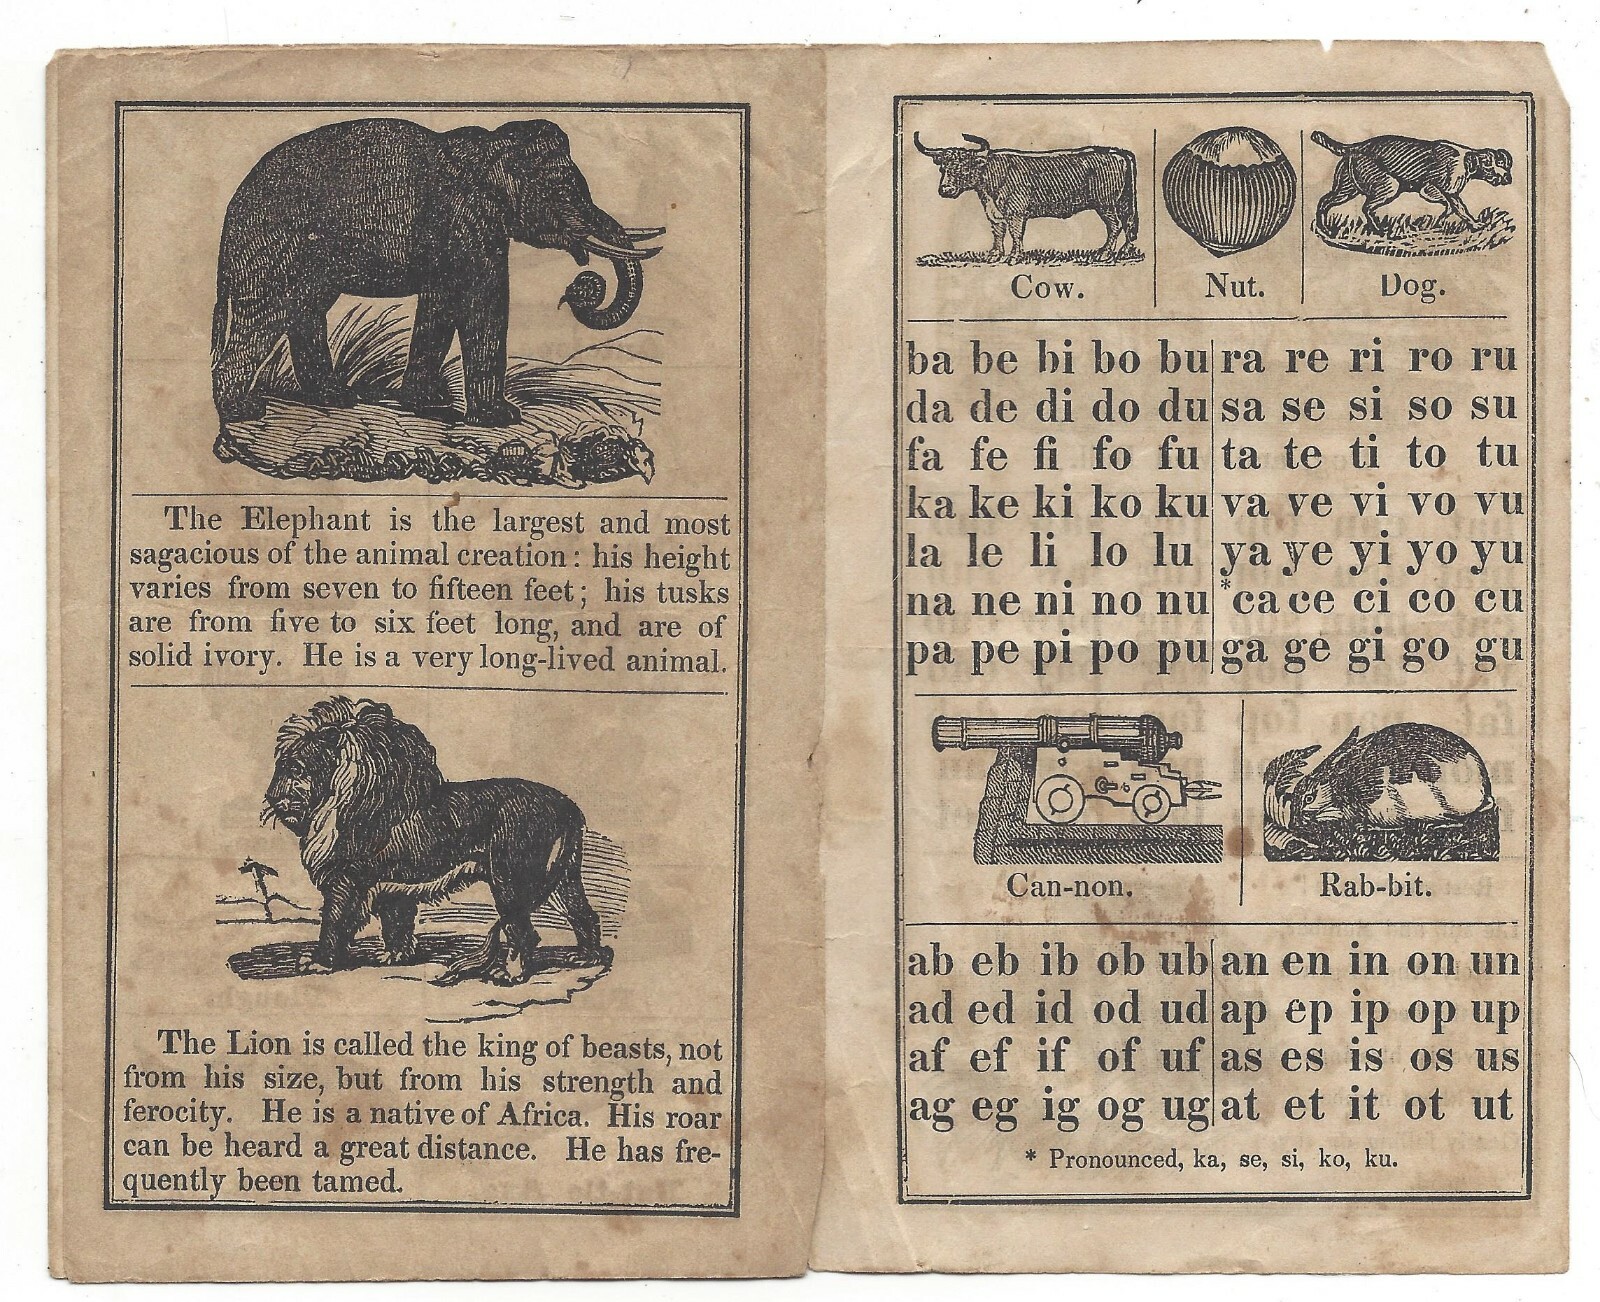 The Elephant is the largest and most
sagacious of the animal creation: his height
varies from seven to fifteen feet; his tusks
are from five to six feet long, and are of
solid ivory. He is a very long-lived animal.
The Lion is called the king of beasts, not
from his size, but from his strength and
ferocity. He is a native of Africa. His roar
can be heard a great distance. He has fre-
quently been tamed.
Cow. Nut. Dog.
ba be bi bo bu ra re ri ro ru
da de di do du sa se si so su
fa fe fi fo fu ta te ti to tu
ka ke ki ko ku va ve vi vo vu
la le li lo lu ya ye yi yo yu
na ne ni no nu *ca ce ci co cu
pa pe pi po pu ga ge gi go gu
Can-non. Rab-bit.
ab eb ib ob ub an en in on un
ad ed id od ud ap ep ip op up
af ef if of uf as es is os us
ag eg ig og ug at et it ot ut
* Pronounced, ka, se, si, ko, ku.